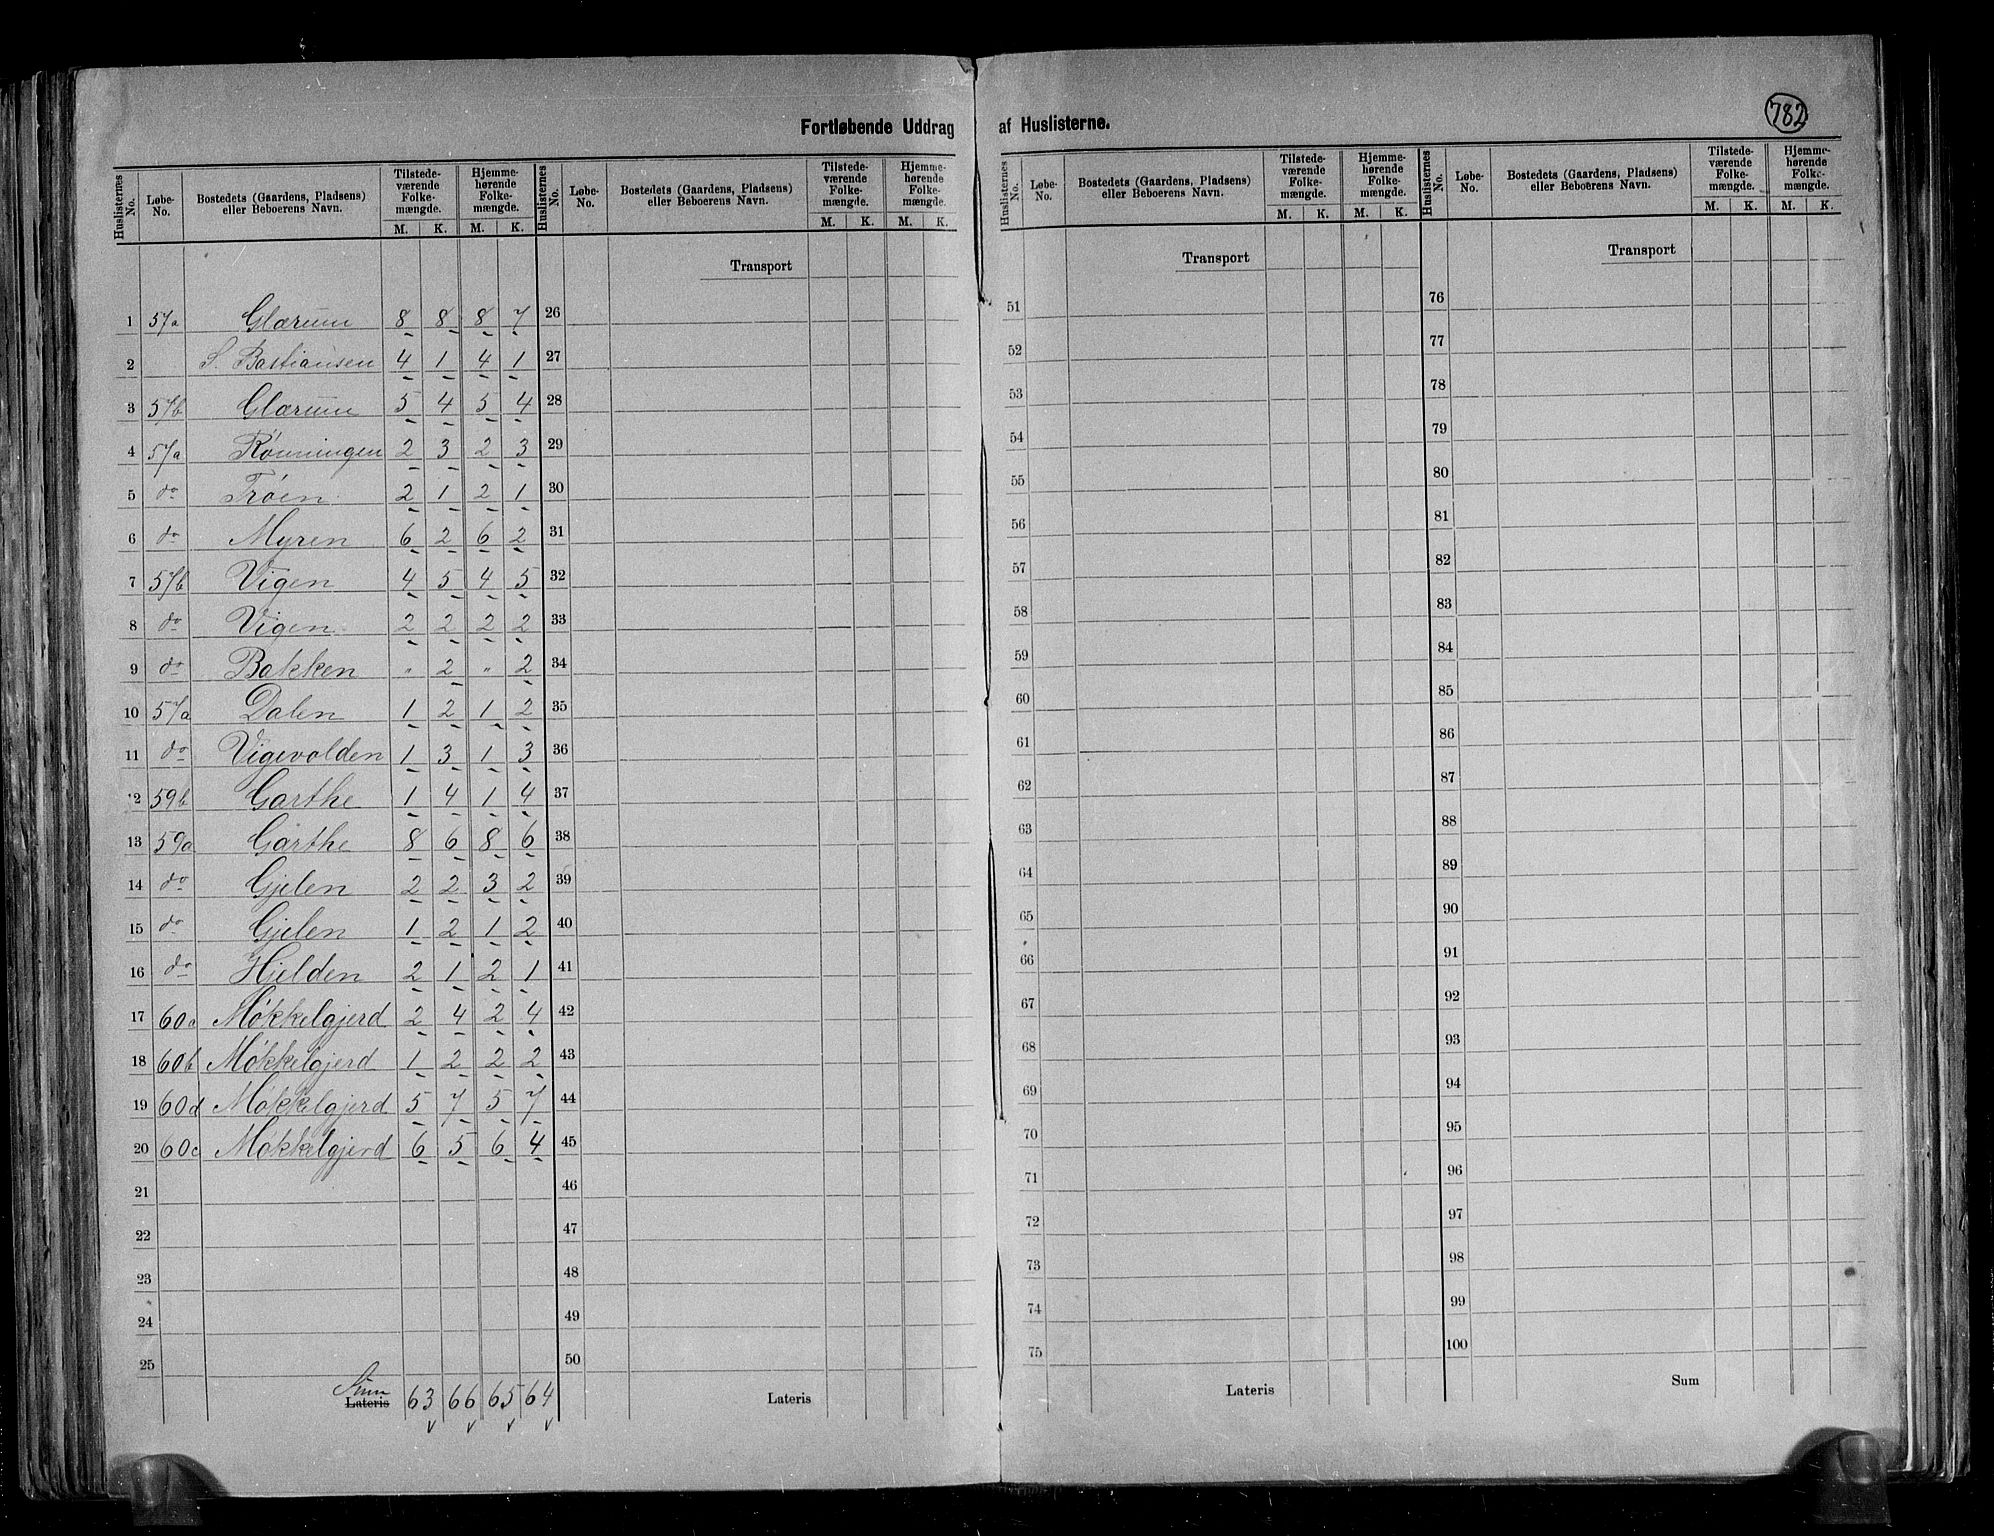 782
Fortløbende Uddrag af Huslisterne.
Huslisternes No. Løbe-No. Bostedets (Gaardens, Pladsens) eller Beboerens Navn. Tilstedeværende Folkemængde. M. K. Hjemmehørende Folkemængde. M. K.
Huslisternes No. Løbe-No. Bostedets (Gaardens, Pladsens) eller Beboerens Navn. Tilstedeværende Folkemængde. M. K. Hjemmehørende Folkemængde. M. K.
1 57a Glærum 8 8 8 7
2 S. Bastiansen 4 1 4 1
3 57b Glærum 5 4 5 4
4 57a Rønningen 2 3 2 3
5 do Trøen 2 1 2 1
6 do Myren 6 2 6 2
7 57b Vigen 4 5 4 5
8 do Vigen 2 2 2 2
9 do Bakken " 2 " 2
10 57a Dalen 1 2 1 2
11 do Vigevolden 1 3 1 3
12 59b Garthe 1 4 1 4
13 59a Garthe 8 6 8 6
14 do Gjelen 2 2 3 2
15 do Gjelen 1 2 1 2
16 do Hjelden 2 1 2 1
17 60a Møkkelgjerd 2 4 2 4
18 60b Møkkelgjerd 1 2 2 2
19 60d Møkkelgjerd 5 7 5 7
20 60c Møkkelgjerd 6 5 6 4
21
22
23
24
25
Sum
Lateris 63 66 65 64
Transport
26
27
28
29
30
31
32
33
34
35
36
37
38
39
40
41
42
43
44
45
46
47
48
49
50
Lateris
Huslisternes No. Løbe-No. Bostedets (Gaardens, Pladsens) eller Beboerens Navn. Tilstedeværende Folkemængde. M. K. Hjemmehørende Folkemængde. M. K.
Transport
51
52
53
54
55
56
57
58
59
60
61
62
63
64
65
66
67
68
69
70
71
72
73
74
75
Lateris
Huslisternes No. Løbe-No. Bostedets (Gaardens, Pladsens) eller Beboerens Navn. Tilstedeværende Folkemængde. M. K. Hjemmehørende Folkemængde. M. K.
Transport
76
77
78
79
80
81
82
83
84
85
86
87
88
89
90
91
92
93
94
95
96
97
98
99
100
Sum